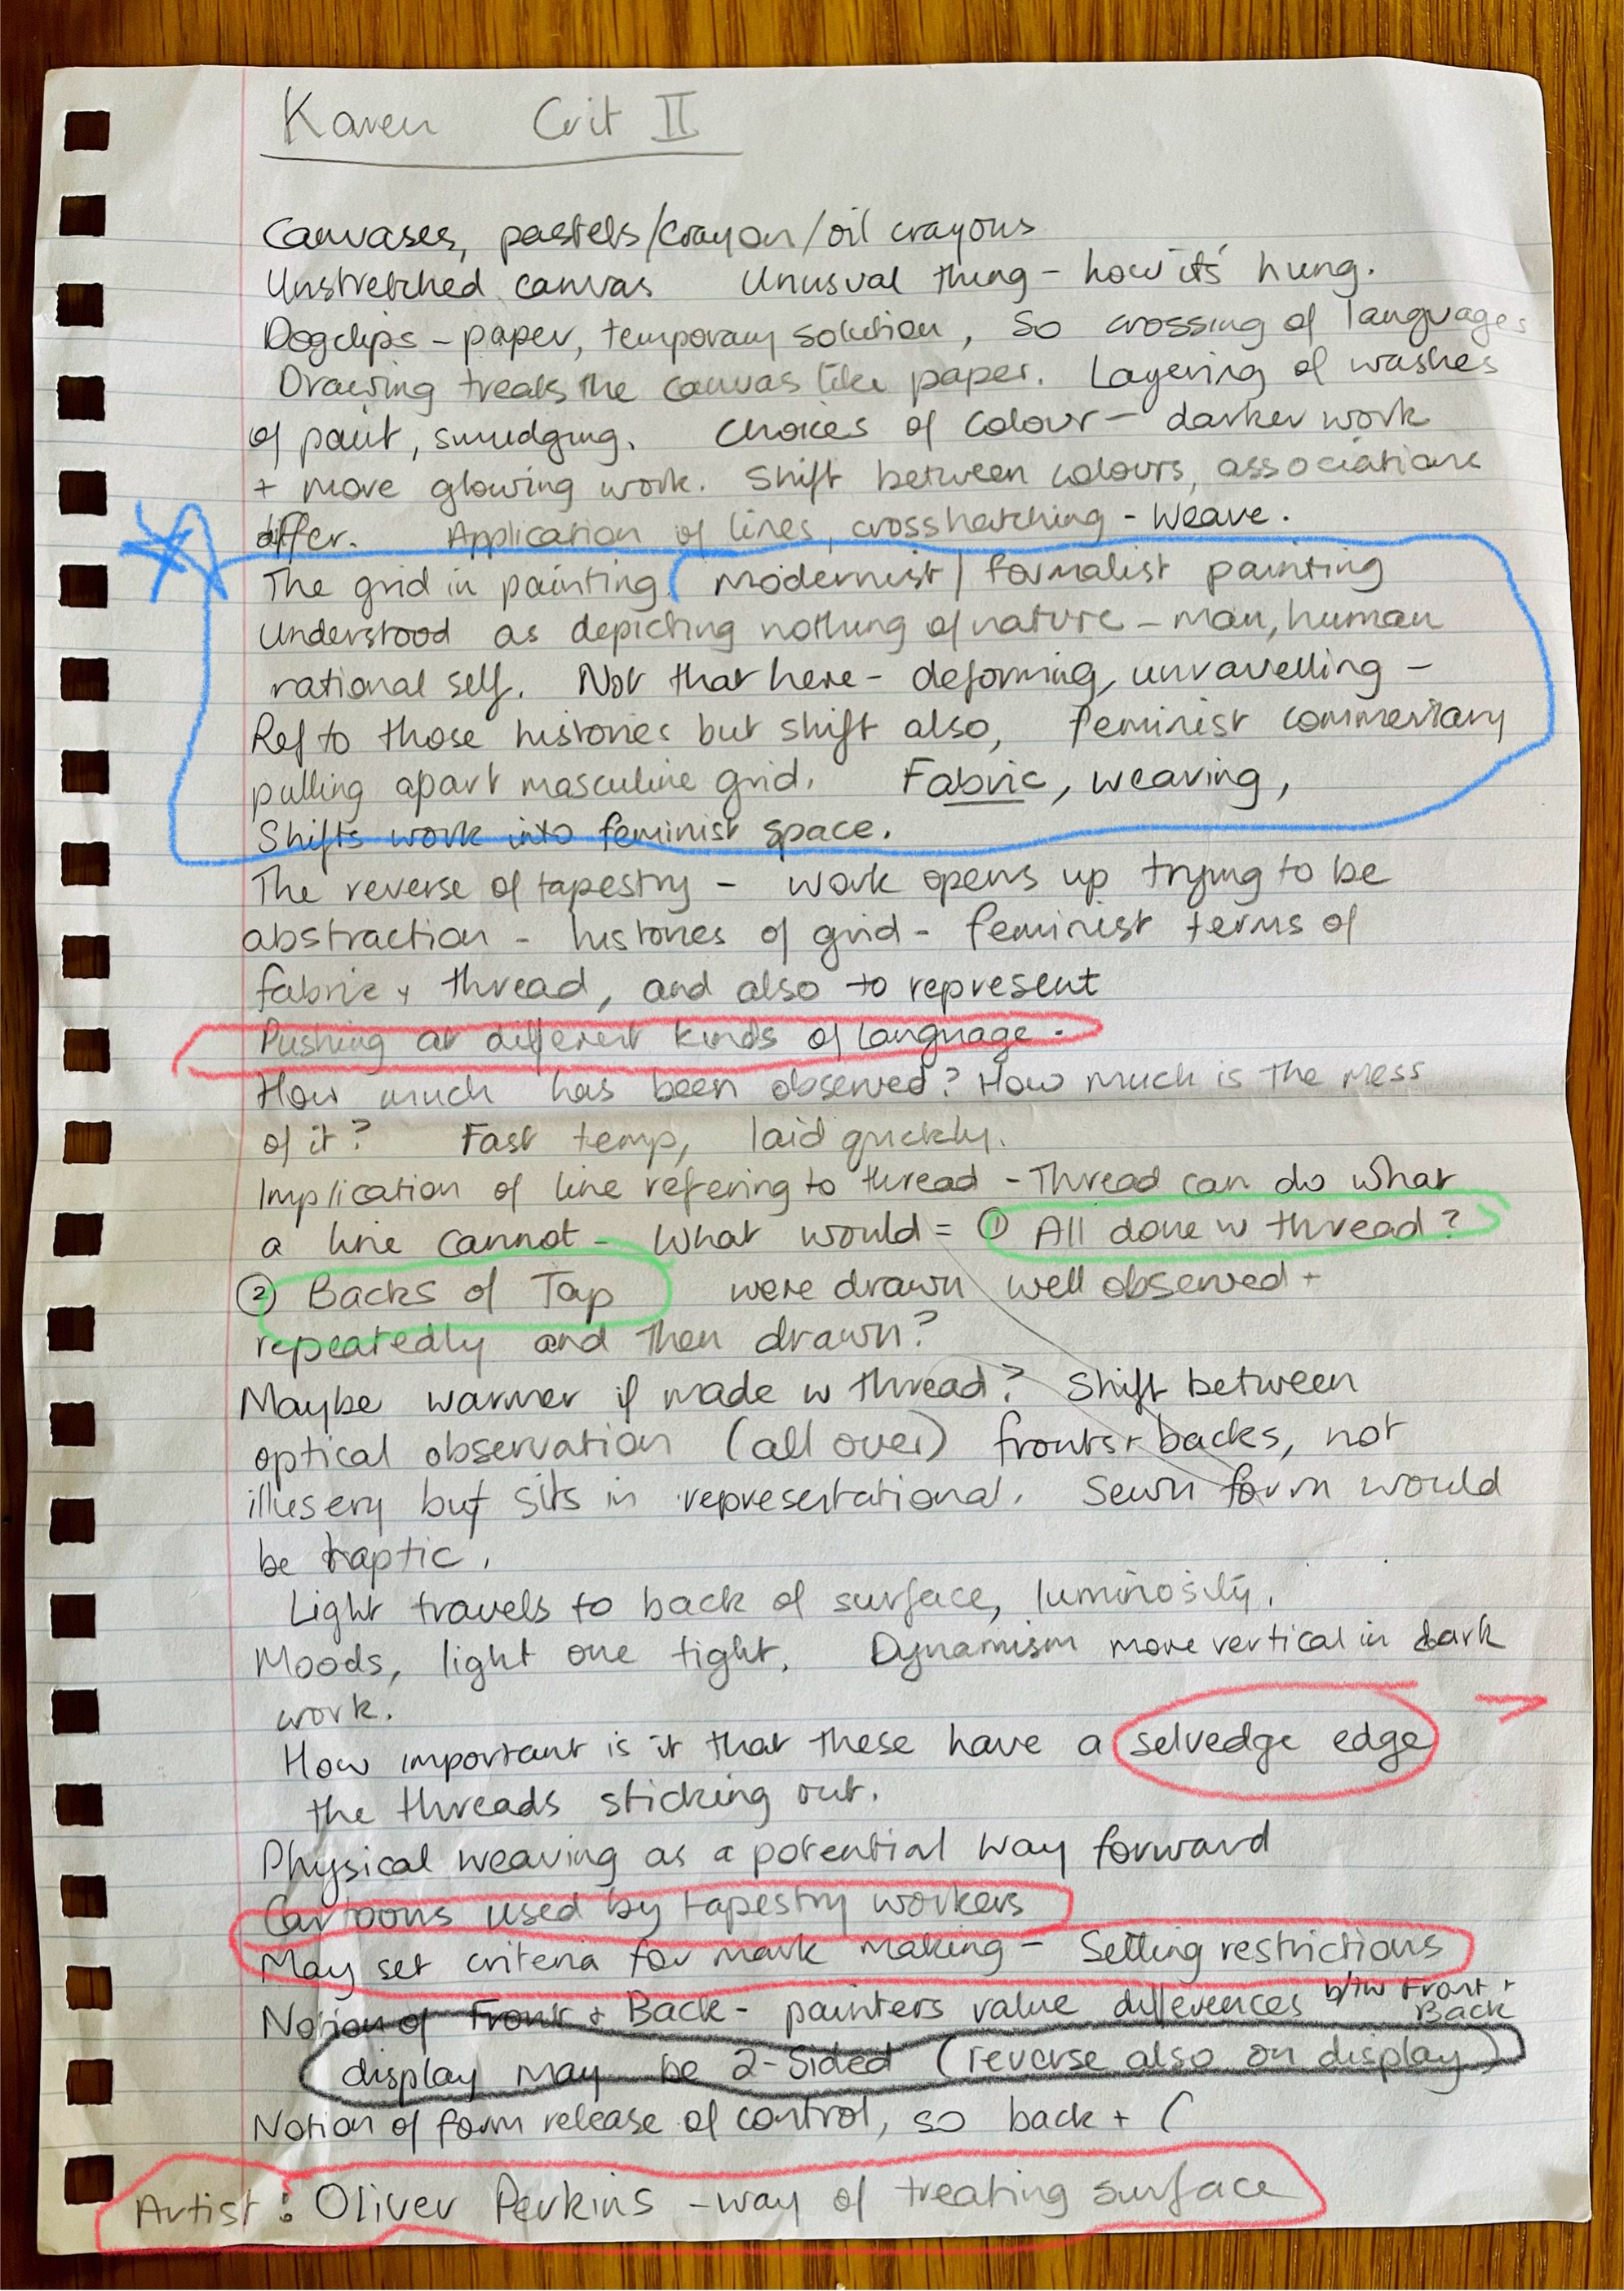 Karen Crit II
Canvases, pastels/crayon/oil crayons
Unstretched canvas Unusual thing - how it's hung.
Dogclips - paper, temporary solution, so crossing of languages
Drawing treats the canvas like paper. Layering of washes
of paint, smudging. Choices of colour - darker work
+ more glowing work. Shift between colours, associations
differ. Application of lines, crosshatching - weave.
The grid in painting (Modernist/formalist painting
Understood as depicting nothing of nature - man, human
rational self. Not that here - deforming, unravelling -
Ref to those histories but shift also, feminist commentary
pulling apart masculine grid. Fabric, weaving,
Shifts work into feminist space.
The reverse of tapestry - work opens up trying to be
abstraction - histories of grid - feminist terms of
fabric + thread, and also to represent
Pushing at different kinds of language.
How much has been observed? How much is the mess
of it? Fast temp, laid quickly.
Implication of line refering to thread - Thread can do what
a line cannot - What would = ① All done w thread?
② Backs of Tap were drawn well observed +
repeatedly and then drawn?
Maybe warmer if made w thread? Shift between
optical observation (all over) fronts + backs, not
illusery but sits in representational. Sewn form would
be haptic.
Light travels to back of surface, luminosity.
Moods, light one tight. Dynamism more vertical in dark
work.
How important is it that these have a selvedge edge >
the threads sticking out.
Physical weaving as a potential way forward
Cartoons used by tapestry workers
May set criteria for mark making - Setting restrictions
Notion of Front + Back - painters value differences b/tw Front +
Back
display may be 2-sided (reverse also on display)
Notion of form release of control, so back + (
Artist: Oliver Perkins - way of treating surface